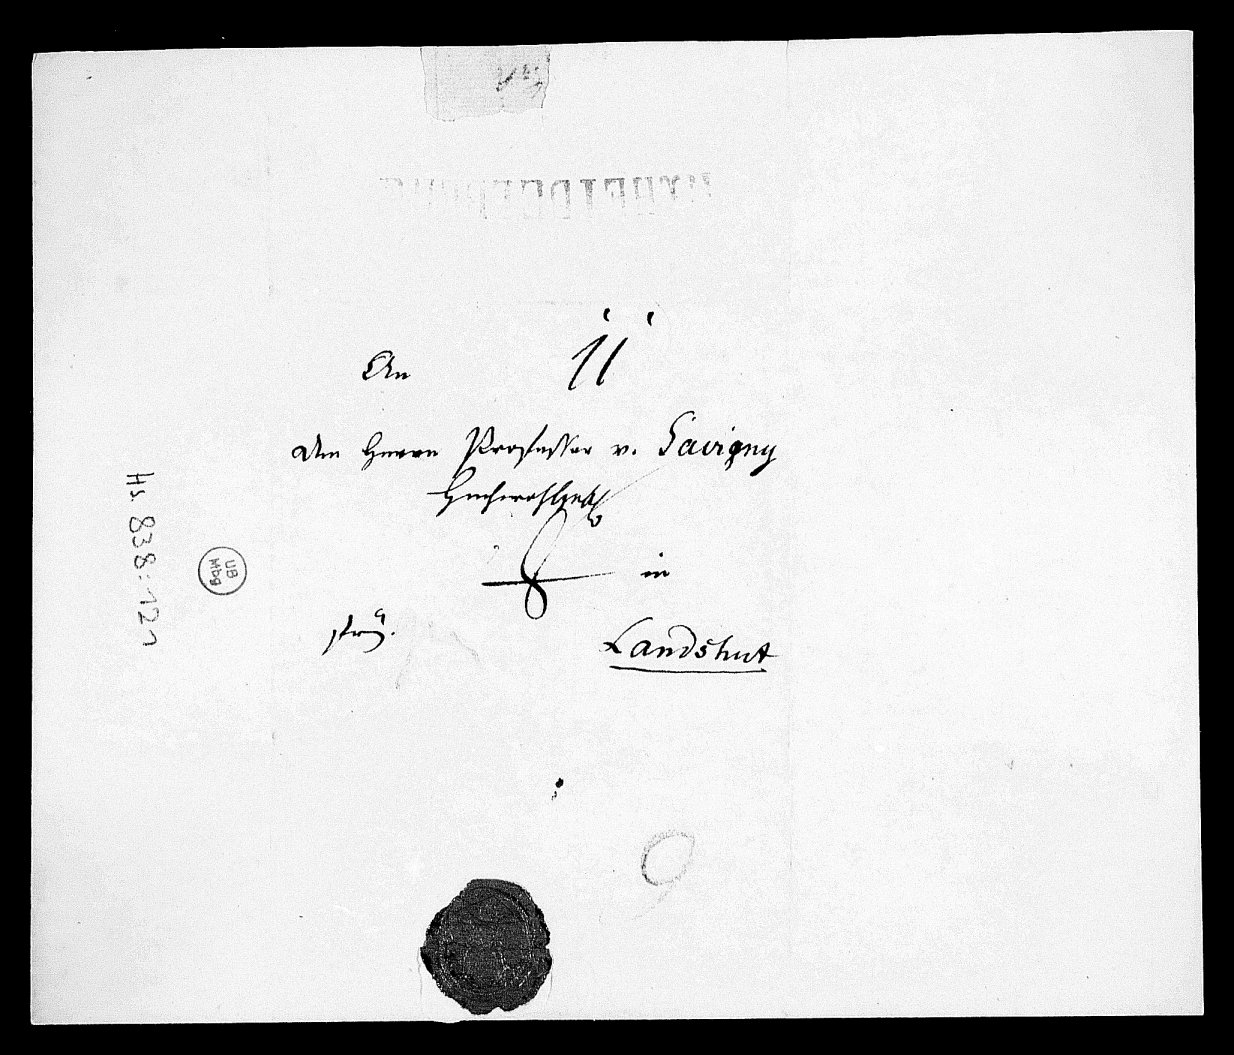 An
den Herrn Professor v. Savigny
Hochwohlgeb
in
frey.
Landshut
Hs. 838:121
UB
Mbg